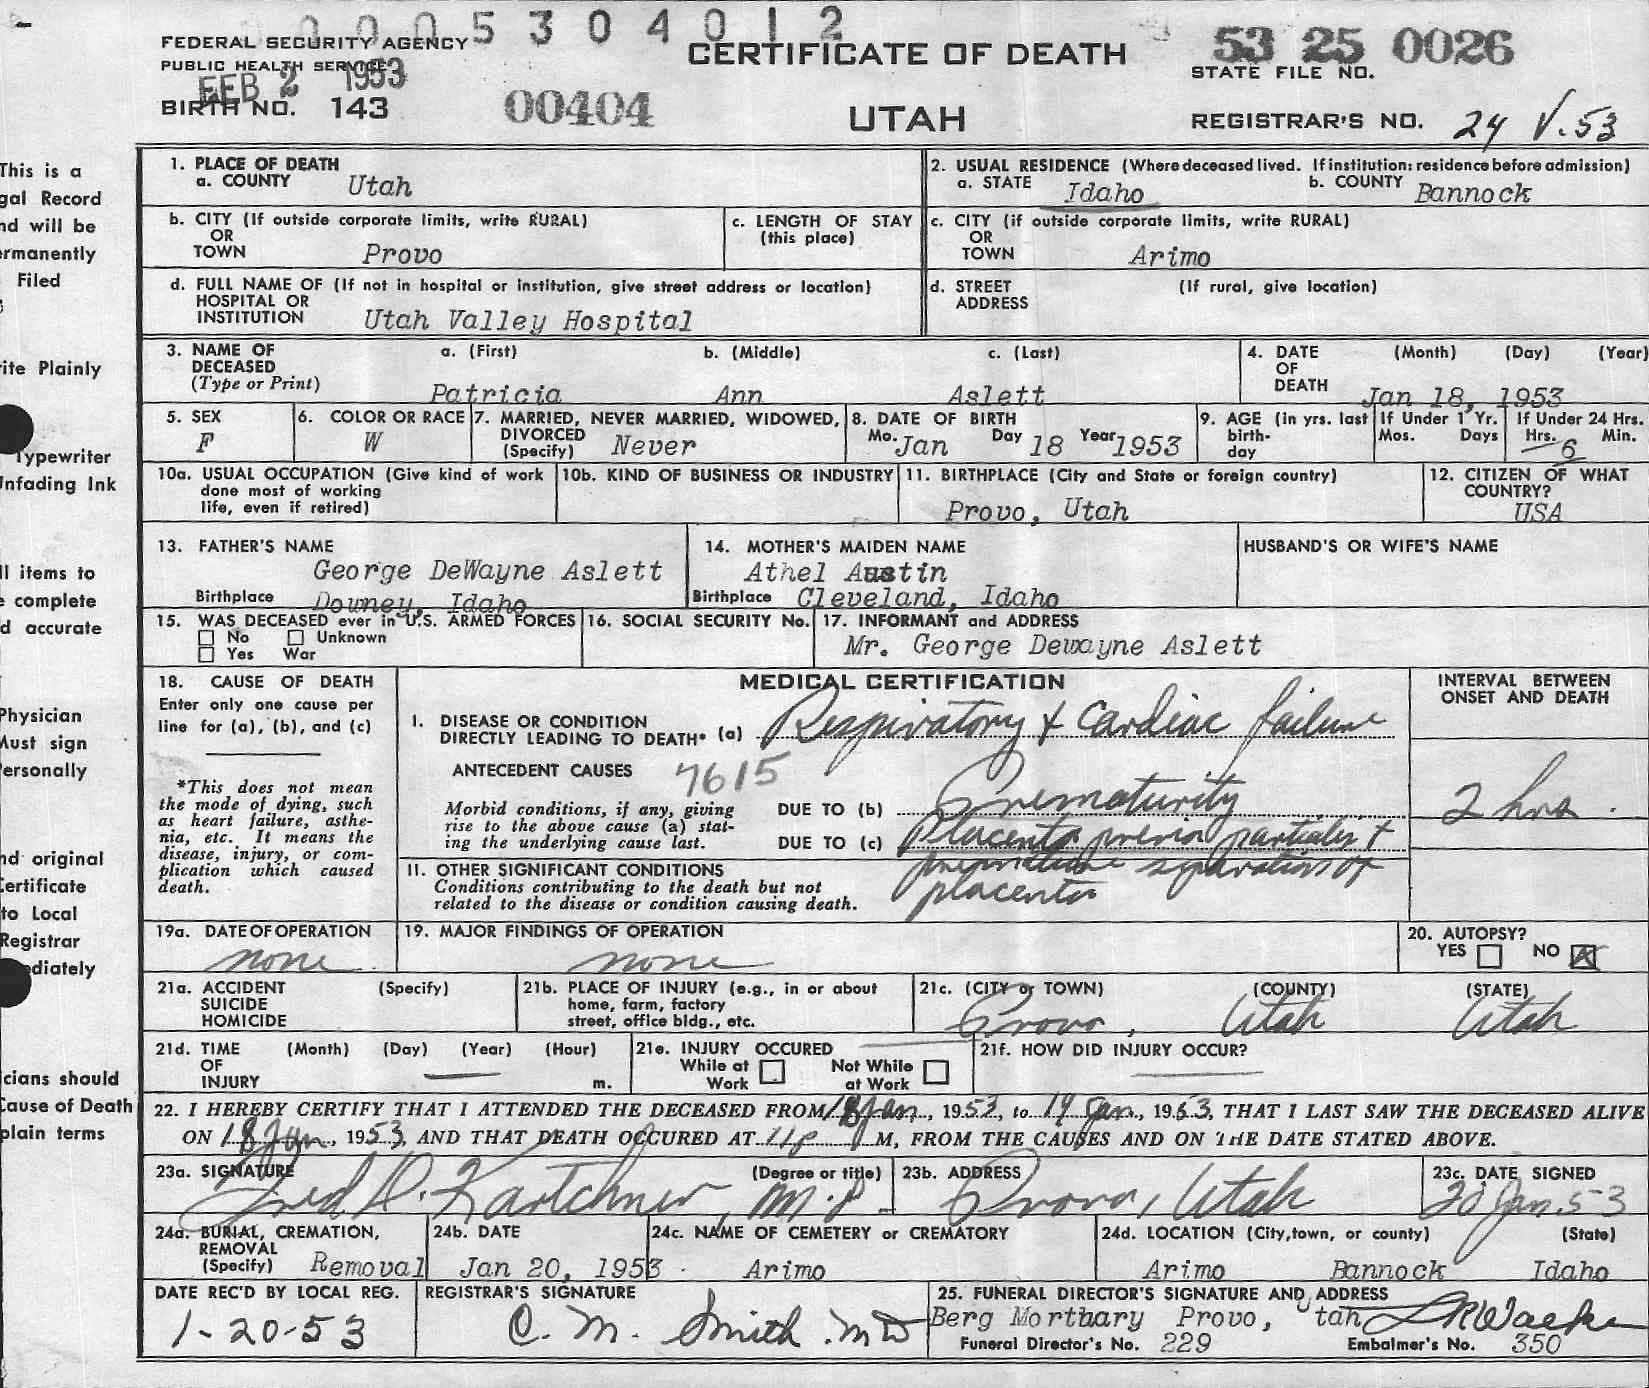 00053040 12
FEDERAL SECURITY AGENCY
PUBLIC HEALTH SERVICE
FEB 2 1953
BIRTH NO. 143
00404
CERTIFICATE OF DEATH
UTAH
53 25 0026
STATE FILE NO.
REGISTRAR'S NO. 24 V.53
This is a
gal Record
nd will be
ermanently
Filed
ite Plainly
Typewriter
Unfading Ink
ll items to
e complete
d accurate
Physician
Must sign
ersonally
nd original
Certificate
to Local
Registrar
ediately
cians should
Cause of Death
plain terms
1. PLACE OF DEATH
a. COUNTY Utah
2. USUAL RESIDENCE (Where deceased lived. If institution: residence before admission)
a. STATE Idaho b. COUNTY Bannock
b. CITY (If outside corporate limits, write RURAL)
OR
TOWN Provo
c. LENGTH OF STAY
(this place)
c. CITY (if outside corporate limits, write RURAL)
OR
TOWN Arimo
d. FULL NAME OF (If not in hospital or institution, give street address or location)
HOSPITAL OR
INSTITUTION Utah Valley Hospital
d. STREET (If rural, give location)
ADDRESS
3. NAME OF DECEASED (Type or Print)
a. (First) b. (Middle) c. (Last)
Patricia Ann Aslett
4. DATE OF DEATH (Month) (Day) (Year)
Jan 18, 1953
5. SEX
F
6. COLOR OR RACE
W
7. MARRIED, NEVER MARRIED, WIDOWED,
DIVORCED
(Specify) Never
8. DATE OF BIRTH
Mo. Jan Day 18 Year 1953
9. AGE (in yrs. last
birth-
day
If Under 1 Yr.
Mos. Days
If Under 24 Hrs.
Hrs. 6 Min.
10a. USUAL OCCUPATION (Give kind of work
done most of working
life, even if retired)
10b. KIND OF BUSINESS OR INDUSTRY
11. BIRTHPLACE (City and State or foreign country)
Provo, Utah
12. CITIZEN OF WHAT
COUNTRY?
USA
13. FATHER'S NAME
George DeWayne Aslett
Birthplace Downey, Idaho
14. MOTHER'S MAIDEN NAME
Athel Austin
Birthplace Cleveland, Idaho
HUSBAND'S OR WIFE'S NAME
15. WAS DECEASED ever in U.S. ARMED FORCES
No Unknown
Yes War
16. SOCIAL SECURITY No.
17. INFORMANT and ADDRESS
Mr. George Dewayne Aslett
18. CAUSE OF DEATH
Enter only one cause per
line for (a), (b), and (c)
*This does not mean
the mode of dying, such
as heart failure, asthe-
nia, etc. It means the
disease, injury, or com-
plication which caused
death.
MEDICAL CERTIFICATION
I. DISEASE OR CONDITION
DIRECTLY LEADING TO DEATH* (a) Respiratory & Cardiac failure
ANTECEDENT CAUSES 7615
Morbid conditions, if any, giving
rise to the above cause (a) stat-
ing the underlying cause last.
DUE TO (b) Prematurity
DUE TO (c) Placenta previa partialis +
premature separation of
placenta
II. OTHER SIGNIFICANT CONDITIONS
Conditions contributing to the death but not
related to the disease or condition causing death.
INTERVAL BETWEEN
ONSET AND DEATH
2 hrs.
19a. DATE OF OPERATION
none
19. MAJOR FINDINGS OF OPERATION
none
20. AUTOPSY?
YES NO X
21a. ACCIDENT (Specify)
SUICIDE
HOMICIDE
21b. PLACE OF INJURY (e.g., in or about
home, farm, factory
street, office bldg., etc.
21c. (CITY or TOWN) (COUNTY) (STATE)
Provo, Utah Utah
21d. TIME (Month) (Day) (Year) (Hour)
OF
INJURY m.
21e. INJURY OCCURED
While at Work Not While at Work
21f. HOW DID INJURY OCCUR?
22. I HEREBY CERTIFY THAT I ATTENDED THE DECEASED FROM 18 Jan, 1953, to 19 Jan, 1953, THAT I LAST SAW THE DECEASED ALIVE
ON 18 Jan, 1953, AND THAT DEATH OCCURED AT 11p M, FROM THE CAUSES AND ON THE DATE STATED ABOVE.
23a. SIGNATURE (Degree or title)
Fred D. Kartchner, M.D.
23b. ADDRESS
Provo, Utah
23c. DATE SIGNED
20 Jan. 53
24a. BURIAL, CREMATION,
REMOVAL
(Specify) Removal
24b. DATE
Jan 20, 1953
24c. NAME OF CEMETERY or CREMATORY
Arimo
24d. LOCATION (City, town, or county) (State)
Arimo Bannock Idaho
DATE REC'D BY LOCAL REG.
1-20-53
REGISTRAR'S SIGNATURE
C. M. Smith. MD
25. FUNERAL DIRECTOR'S SIGNATURE AND ADDRESS
Berg Mortuary Provo, Utah
Funeral Director's No. 229 Embalmer's No. 350